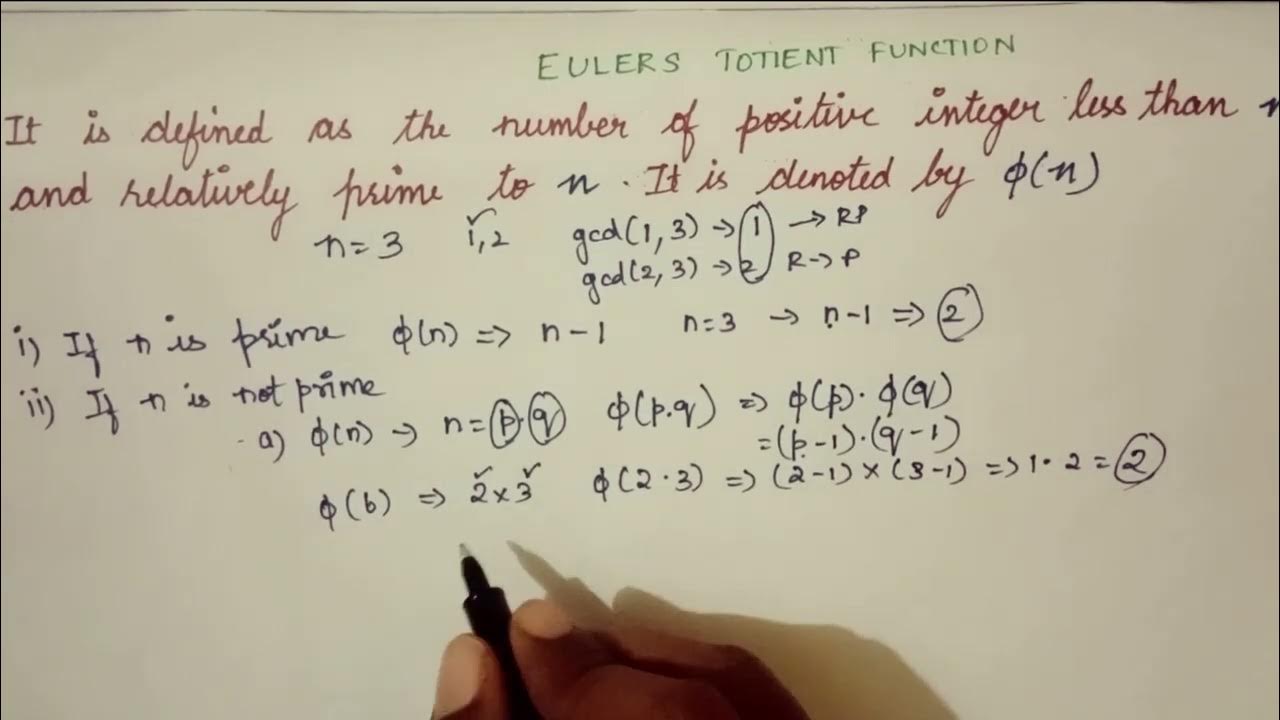 EULERS TOTIENT FUNCTION
It is defined as the number of positive integer less than n
and relatively prime to n. It is denoted by ϕ(n)
n=3 1,2 gcd(1,3) → 1 → RP
gcd(2,3) → 2 R→P
i) If n is prime ϕ(n) => n-1 n=3 → n-1 => 2
ii) If n is not prime
a) ϕ(n) → n=p.q ϕ(p.q) => ϕ(p).ϕ(q)
=(p-1).(q-1)
ϕ(6) => 2×3 ϕ(2.3) => (2-1)×(3-1) => 1.2=2